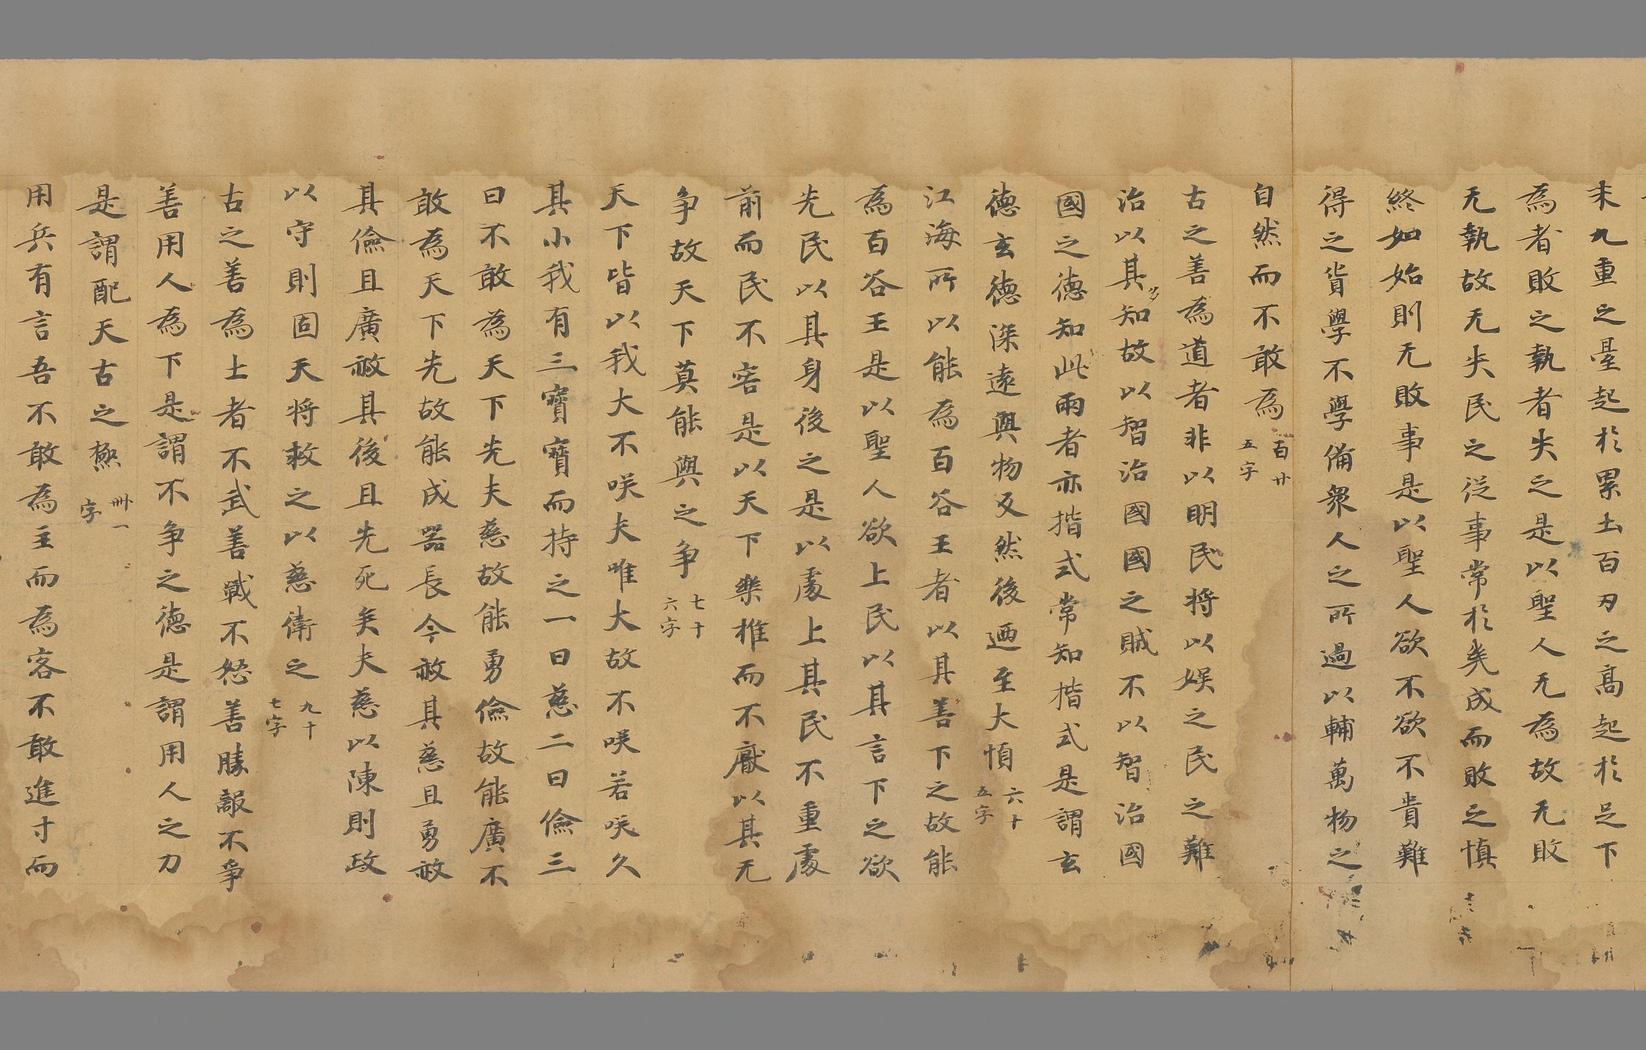 末九重之臺起於累土百刃之高起於足下
為者敗之執者失之是以聖人无為故无敗
无執故无失民之従事常於幾成而敗之慎
終如始則无敗事是以聖人欲不欲不貴難
得之貨學不學備眾人之所過以輔萬物之
自然而不敢為百廿五字
古之善為道者非以明民將以娛之民之難
治以其多知故以智治國國之賊不以智治國
國之德知此兩者亦揩式常知揩式是謂玄
德玄德深遠與物反然後迺至大慎六十五字
江海所以能為百谷王者以其善下之故能
為百谷王是以聖人欲上民以其言下之欲
先民以其身後之是以處上其民不重處
前而民不害是以天下樂推而不猒以其无
爭故天下莫能與之爭七十六字
天下皆以我大不咲夫唯大故不咲若咲久
其小我有三寶寶而持之一曰慈二曰儉三
曰不敢為天下先夫慈故能勇儉故能廣不
敢為天下先故能成器長今赦其慈且勇赦
其儉且廣赦其後且先死矣夫慈以陳則政
以守則固天將救之以慈衛之九十七字
古之善為士者不武善戰不怒善勝敵不爭
善用人為下是謂不爭之德是謂用人之力
是謂配天古之極卌一字
用兵有言吾不敢為主而為客不敢進寸而